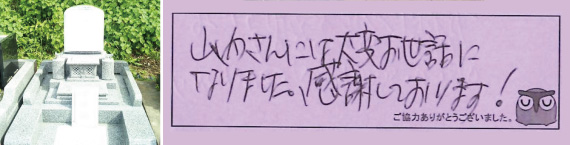 さんには大変お世話に
なりました。感謝しております!
ご協力ありがとうございました。